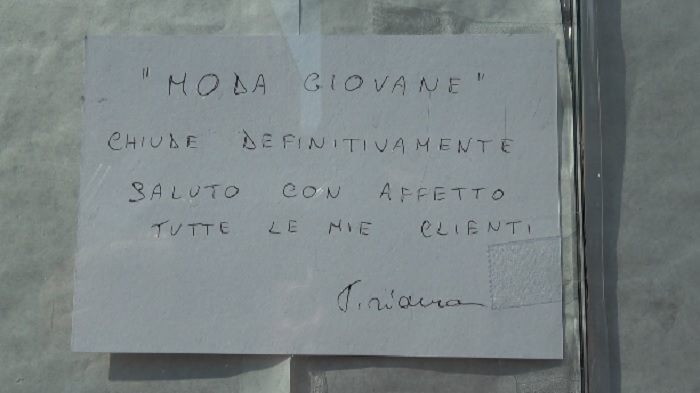 "MODA GIOVANE"
CHIUDE DEFINITIVAMENTE
SALUTO CON AFFETTO
TUTTE LE MIE CLIENTI